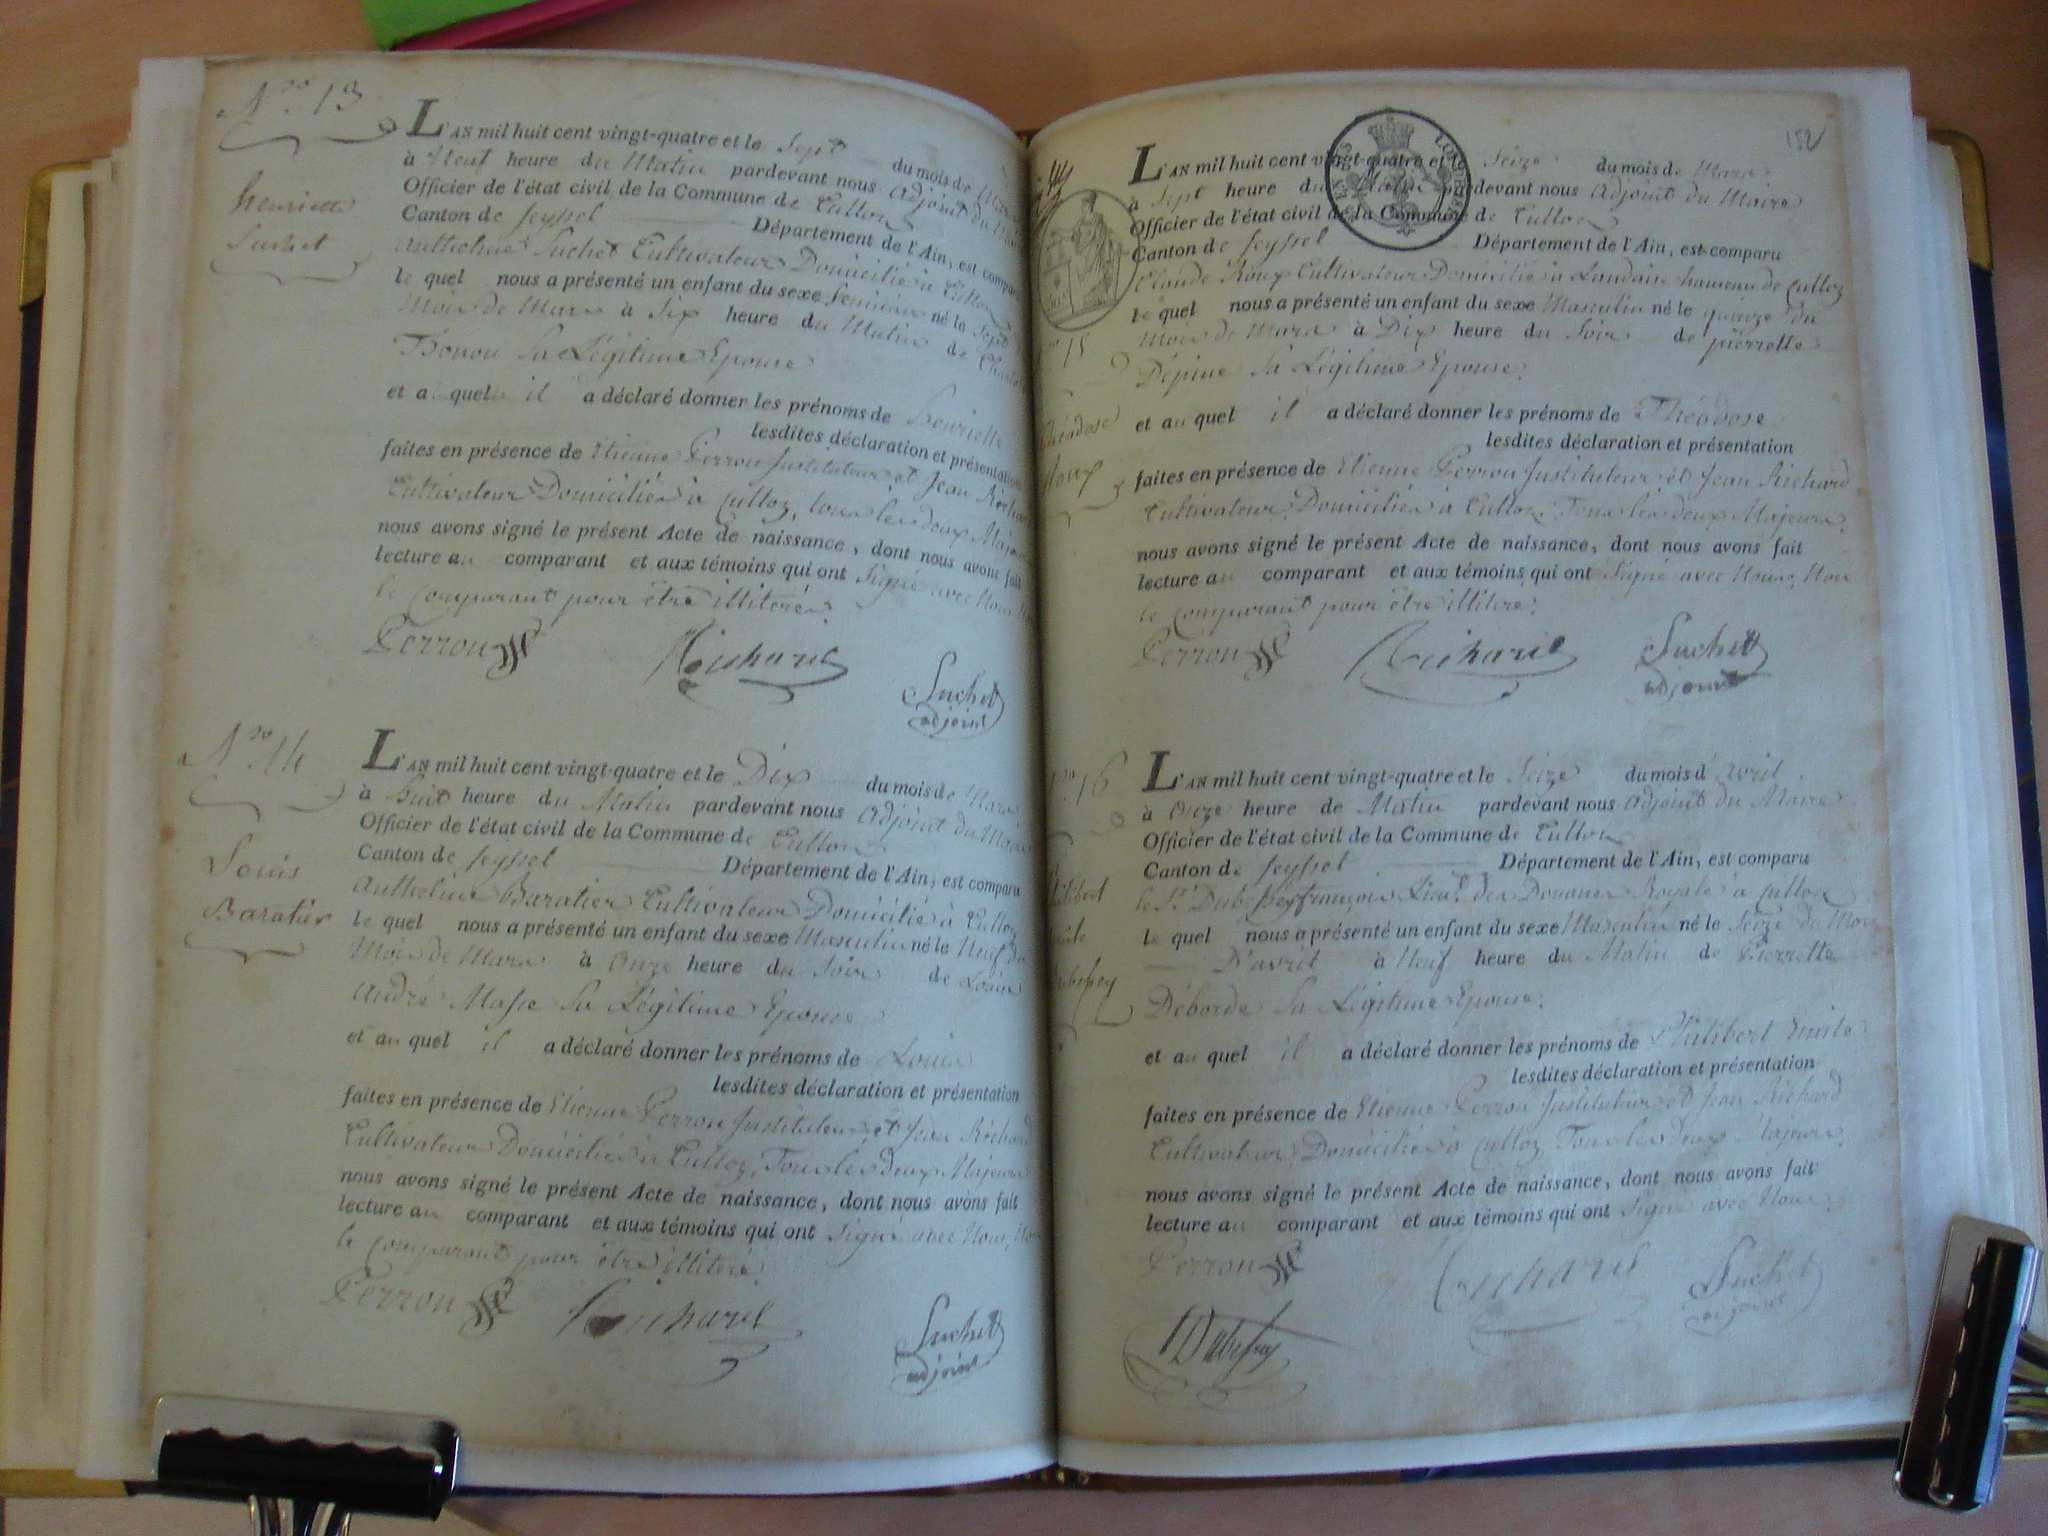 N.ro 13
henriette
Suchet
L'AN mil huit cent vingt-quatre et le Sept du mois de Mars
à Neuf heure du Matin pardevant nous adjoint du Maire
Officier de l'état civil de la Commune de Culloz
Canton de Seyssel Département de l'Ain, est comparu
anthelme Suchet Cultivateur Domicilié à Culloz
le quel nous a présenté un enfant du sexe feminin né le Sept
Mois de Mars à Six heure du Matin de
Sa Légitime Epouse
et a quel il a déclaré donner les prénoms de henriette
lesdites déclaration et présentation
faites en présence de Etienne Perrou Instituteur et Jean Richard
Cultivateur Domiciliés à Culloz, tous les deux Majeurs
nous avons signé le présent Acte de naissance, dont nous avons fait
lecture au comparant et aux témoins qui ont Signé avec Nous, Non
le Comparant pour être illitéré
Perrou Richard
Suchet
adjoint
N.ro 14
Louis
Baratier
L'AN mil huit cent vingt-quatre et le Dix du mois de Mars
à huit heure du Matin pardevant nous adjoint du Maire
Officier de l'état civil de la Commune de Culloz
Canton de Seyssel Département de l'Ain, est comparu
anthelme Baratier Cultivateur Domicilié à Culloz
le quel nous a présenté un enfant du sexe Masculin né le Neuf du
Mois de Mars à Onze heure du Soir de Louise
andré Masse Sa Légitime Epouse
et au quel il a déclaré donner les prénoms de Louis
lesdites déclaration et présentation
faites en présence de Etienne Perrou Instituteur et Jean Richard
Cultivateur Domiciliés à Culloz, Tous les deux Majeurs
nous avons signé le présent Acte de naissance, dont nous avons fait
lecture au comparant et aux témoins qui ont Signé avec Nous, Non
le Comparant pour être illitéré
Perrou Richard Suchet
adjoint
152
15
Théodose
Roux
L'AN mil huit cent vingt-quatre et le Seize du mois de Mars
à Sept heure du Matin pardevant nous adjoint du Maire
Officier de l'état civil de la Commune de Culloz
Canton de Seyssel Département de l'Ain, est comparu
Claude Roux Cultivateur Domicilié à Landaize hameau de Culloz
le quel nous a présenté un enfant du sexe Masculin né le quinze du
Mois de Mars à Dix heure du Soir de pierrette
Dépine Sa Légitime Epouse
et au quel il a déclaré donner les prénoms de Théodose
lesdites déclaration et présentation
faites en présence de Etienne Perrou Instituteur et Jean Richard
Cultivateur Domiciliés à Culloz Tous les deux Majeurs
nous avons signé le présent Acte de naissance, dont nous avons fait
lecture au comparant et aux témoins qui ont Signé avec Nous, Non
le Comparant pour être illitéré
Perrou Richard Suchet
adjoint
N.ro 16
Philibert
Emile
Dubessey
L'AN mil huit cent vingt-quatre et le Seize du mois d'avril
à Onze heure de Matin pardevant nous adjoint du Maire
Officier de l'état civil de la Commune de Culloz
Canton de Seyssel Département de l'Ain, est comparu
le Sr Dubessey françois Lieut. des Douanes Royale à Culloz
le quel nous a présenté un enfant du sexe Masculin né le Seize du Mois
D'avril à Neuf heure du Matin de Pierrette
Déborde Sa Légitime Epouse
et au quel il a déclaré donner les prénoms de Philibert Emile
lesdites déclaration et présentation
faites en présence de Etienne Perrou Instituteur et Jean Richard
Cultivateur Domiciliés à Culloz, Tous les deux Majeurs
nous avons signé le présent Acte de naissance, dont nous avons fait
lecture au comparant et aux témoins qui ont Signé avec Nous
Perrou Richard Suchet
adjoint
Dubessey